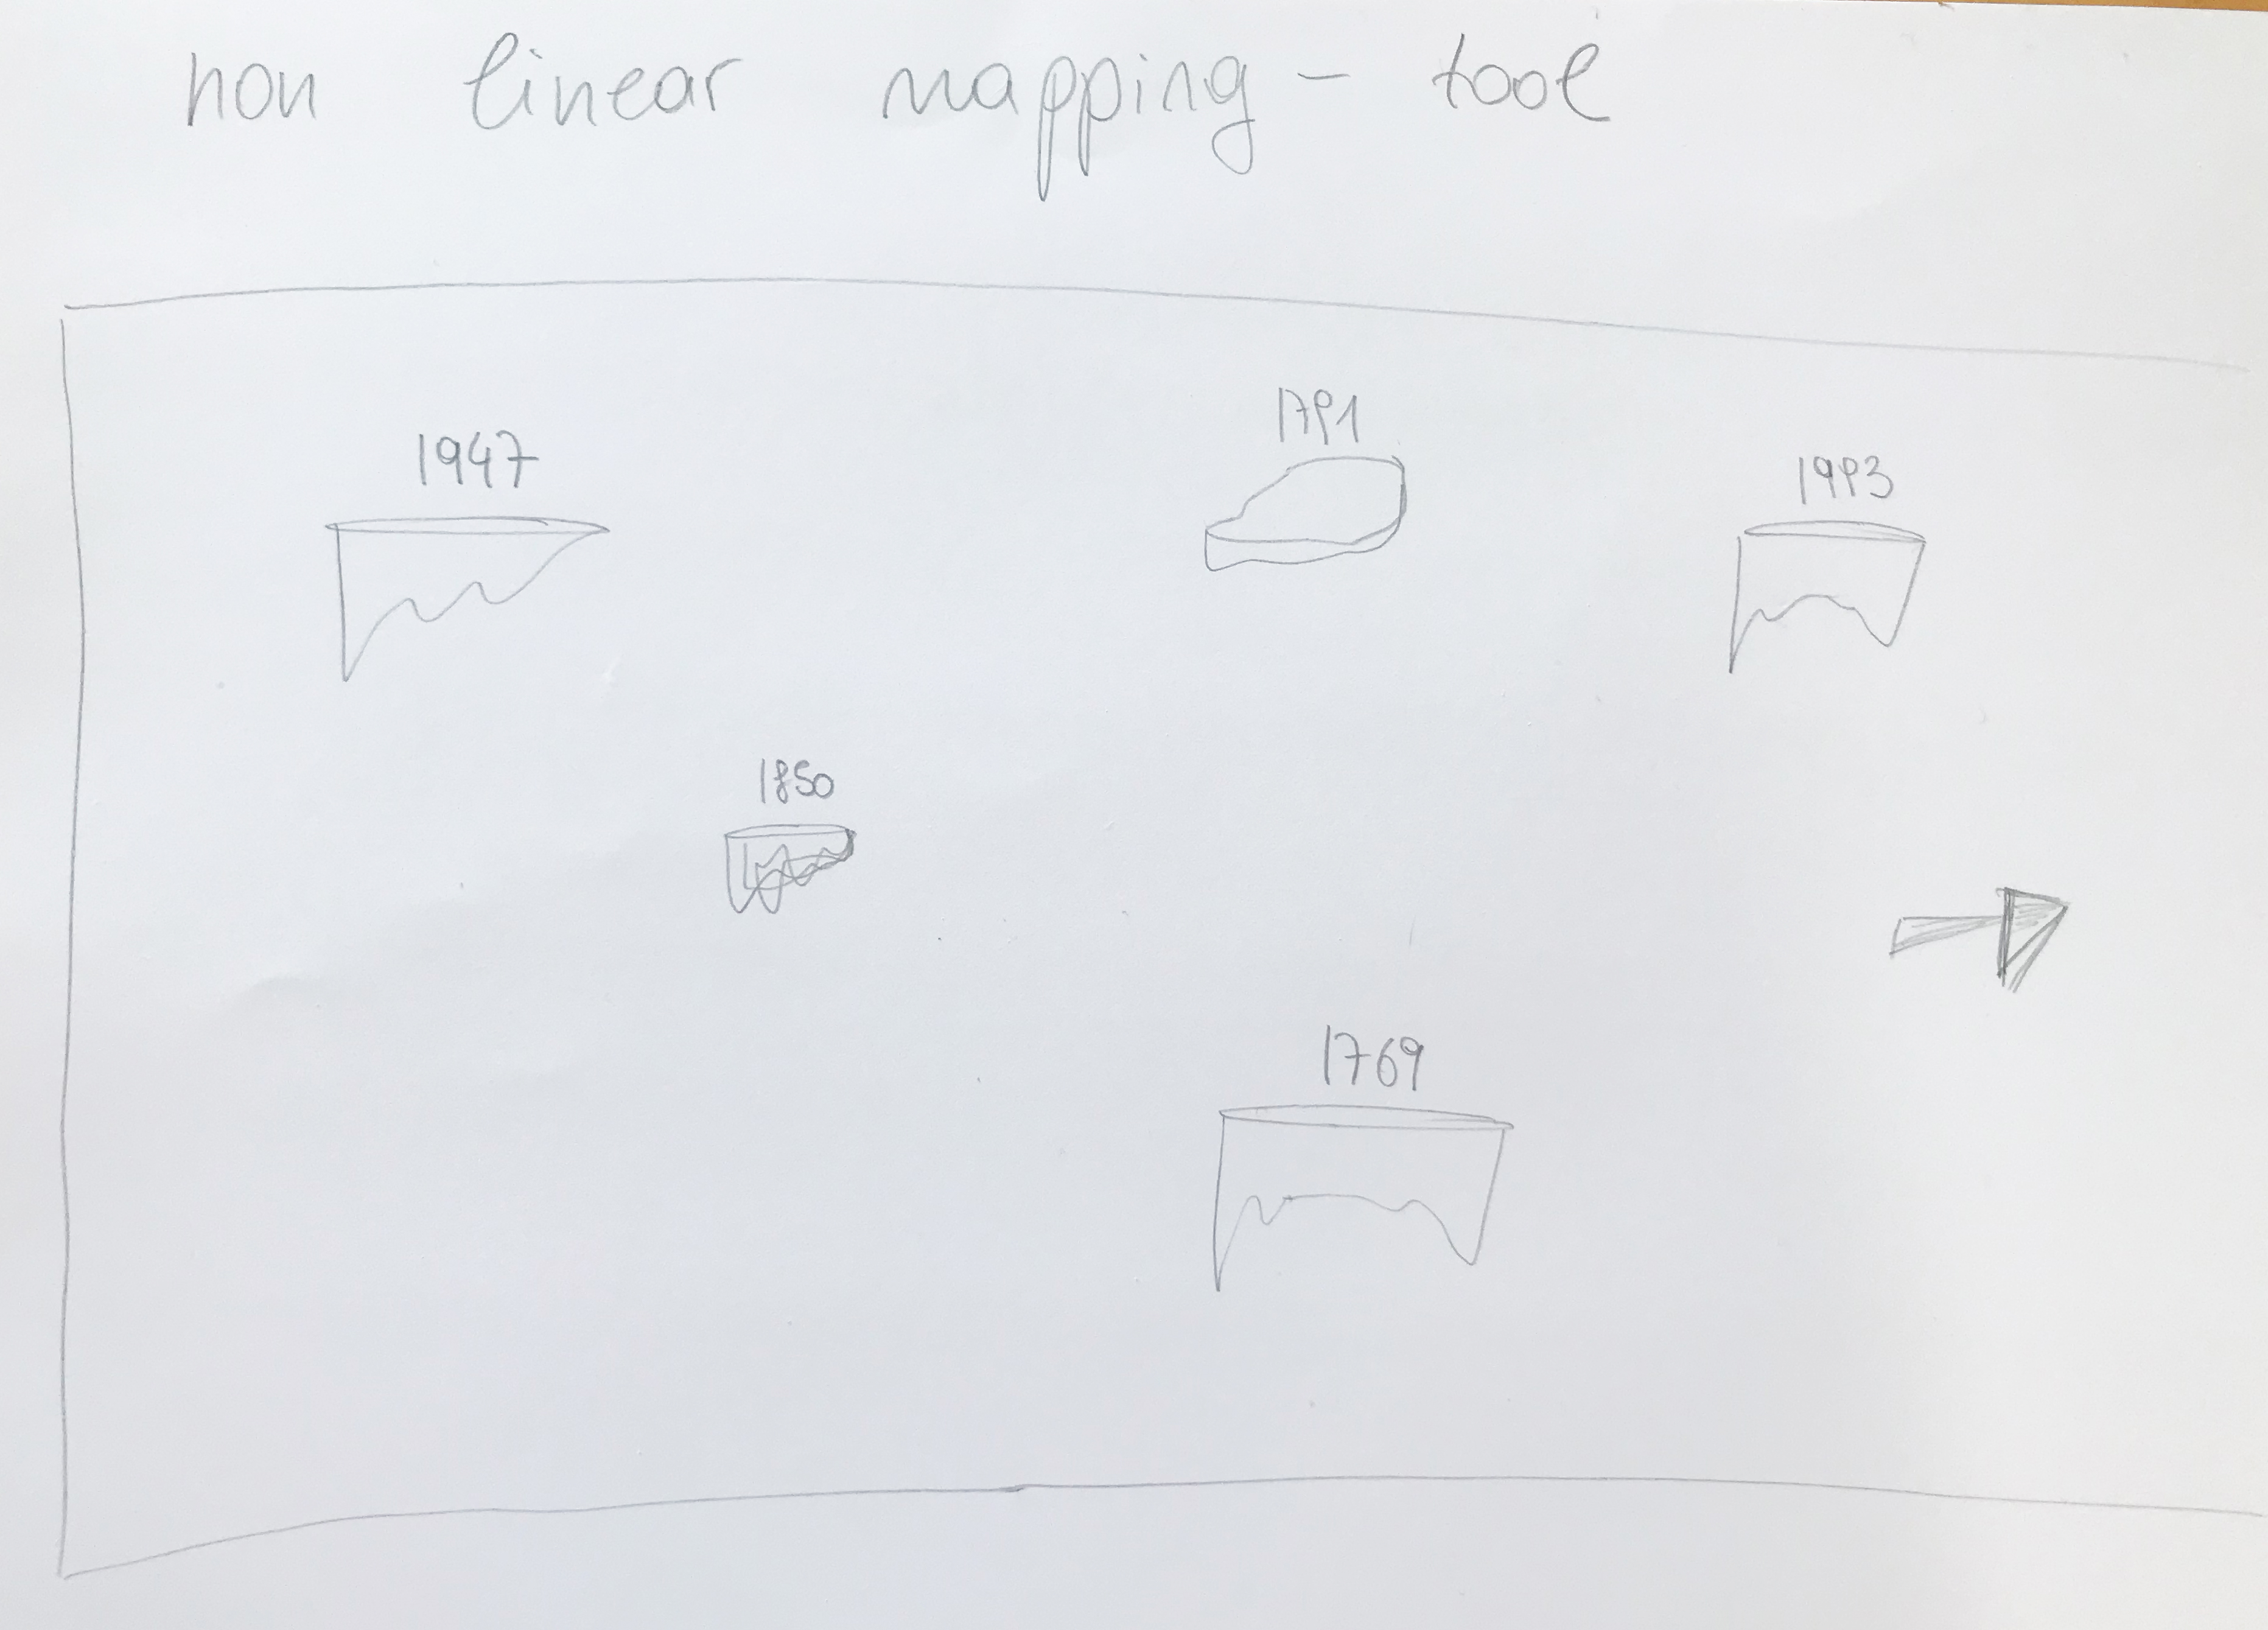 non linear mapping - tool
1791
1947
1993
1850
1769